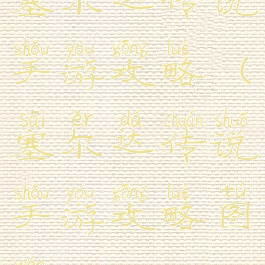 塞尔达传说
shǒu yóu gōng lüè
手游攻略（
sāi ěr dá chuán shuō
塞尔达传说
shǒu yóu gōng lüè tú
手游攻略图